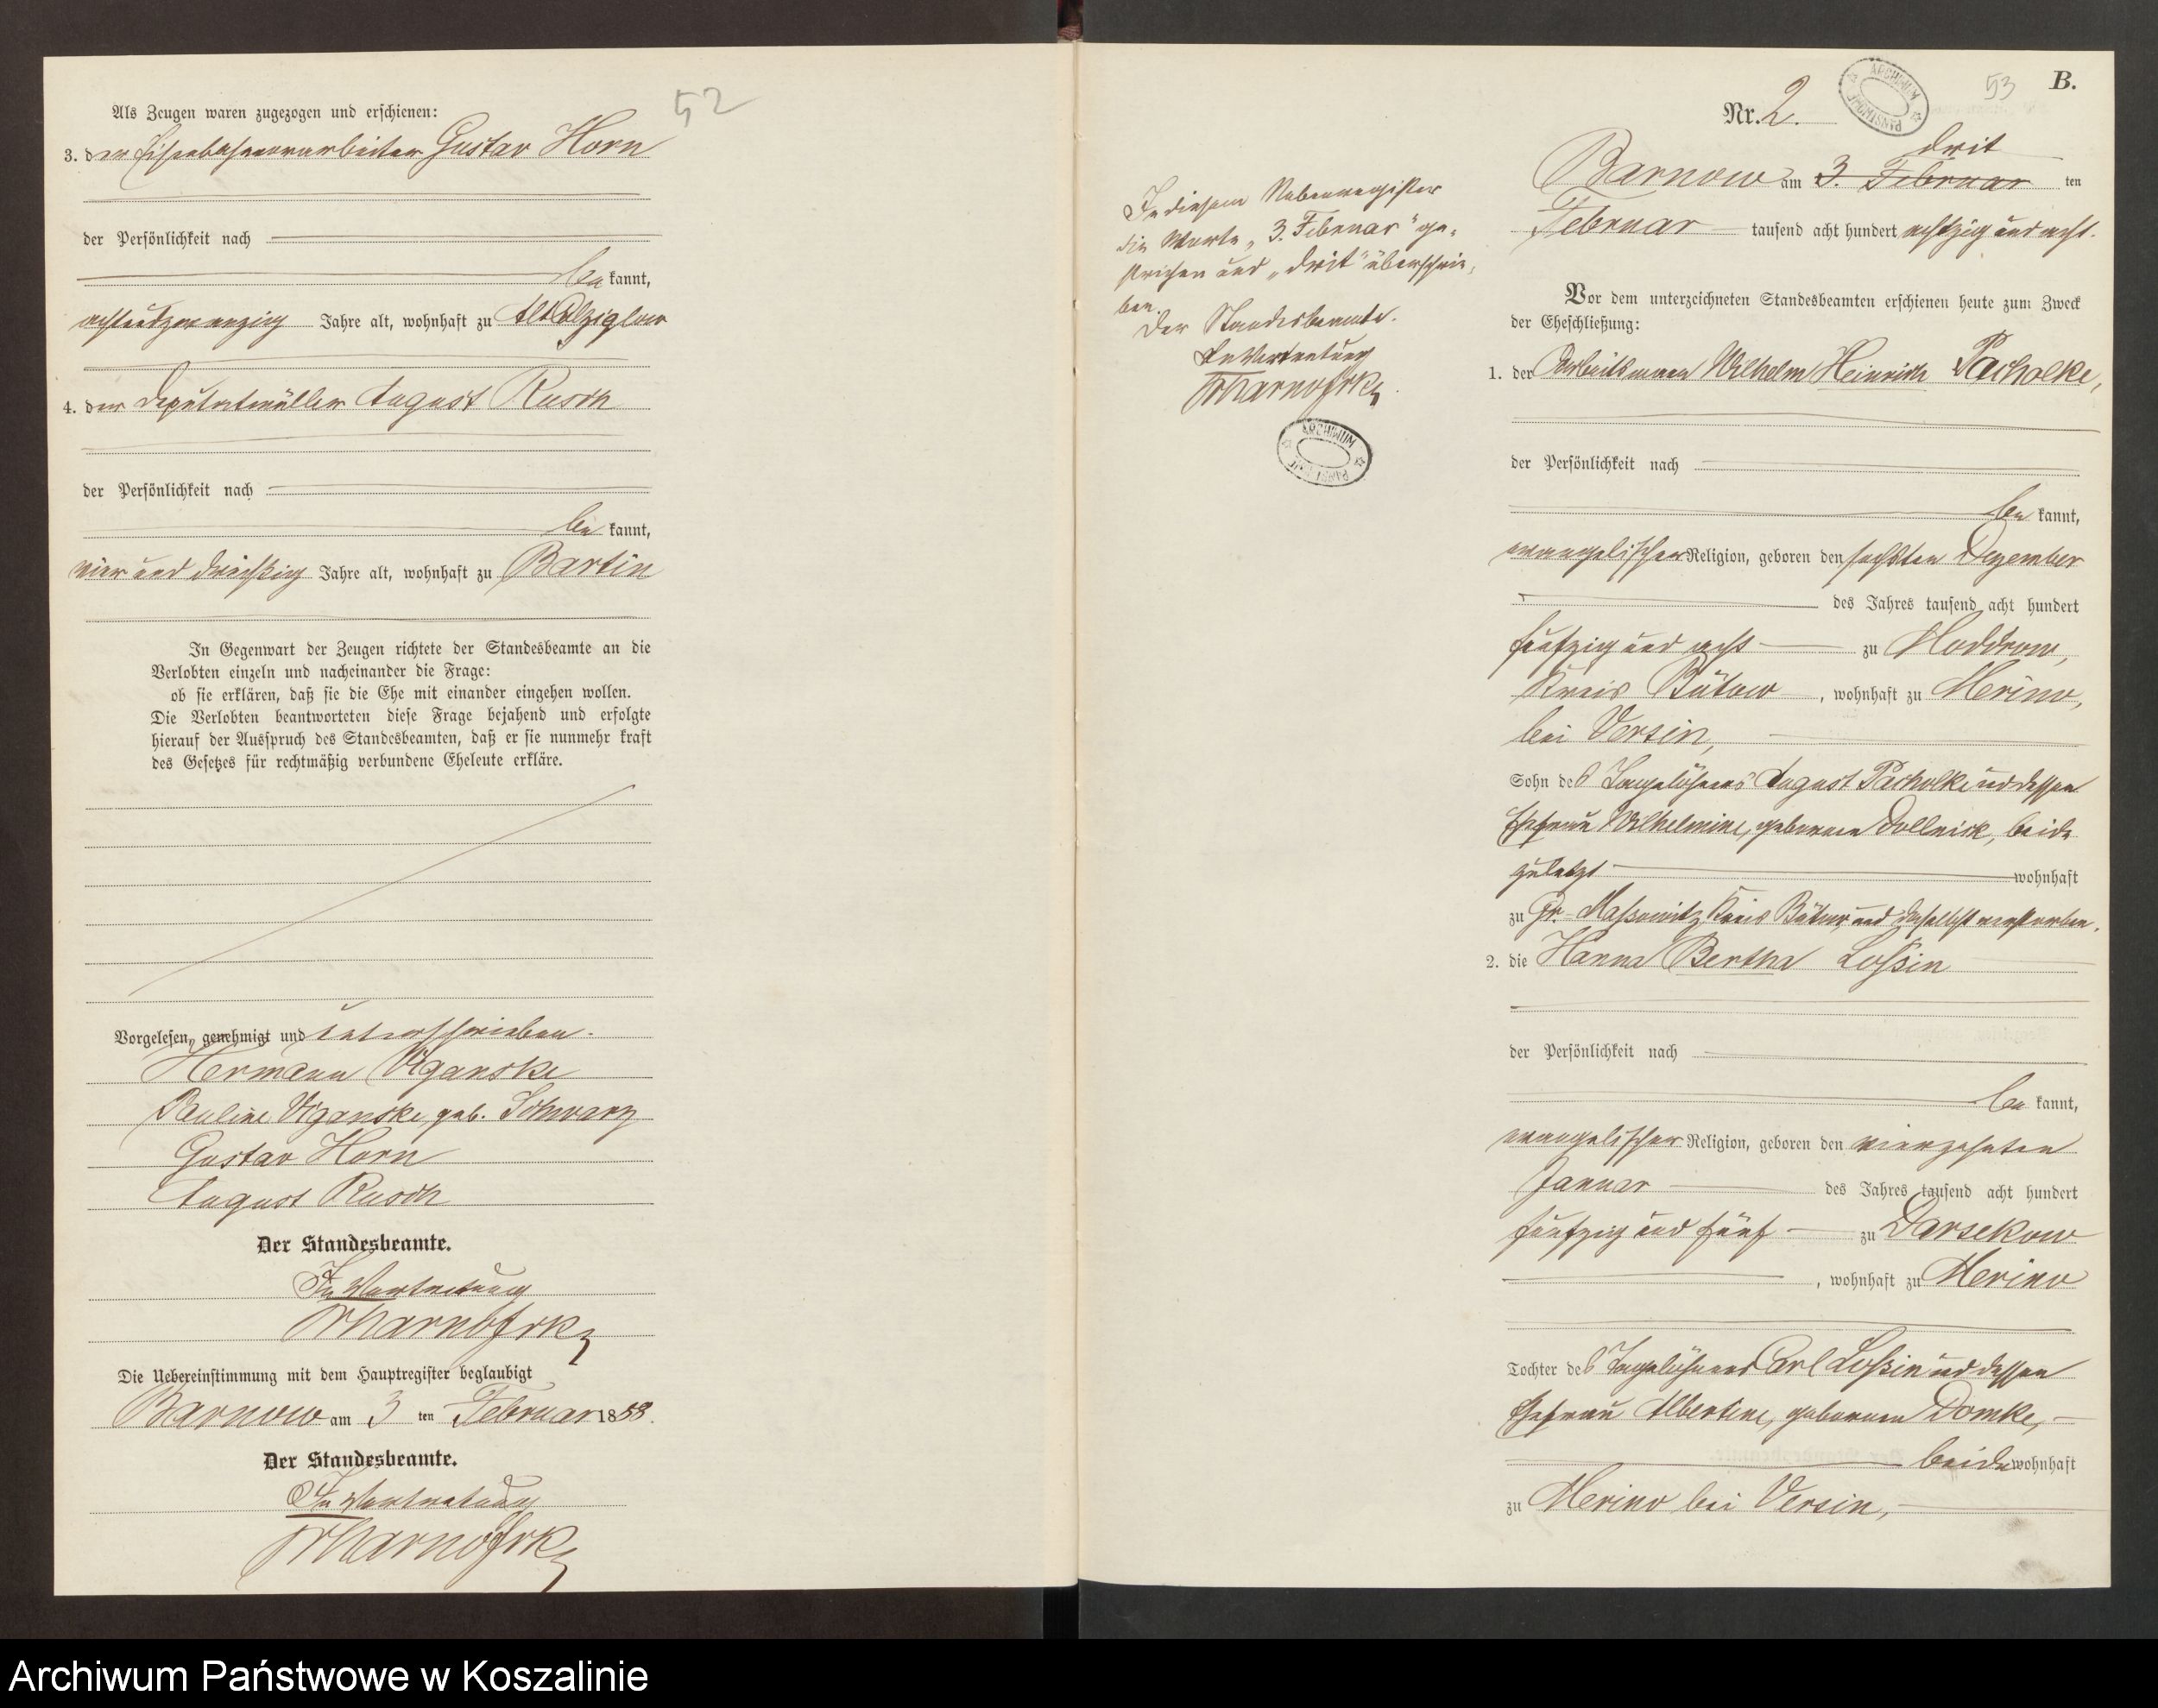 52
Als Zeugen waren zugezogen und erschienen:
3. den Eisenbahnvorarbeiter Gustav Horn
der Persönlichkeit nach
be kannt,
achtundzwanzig Jahre alt, wohnhaft zu Alt Colziglow
4. der Deputatmüller August Rusch
der Persönlichkeit nach
be kannt,
vier und dreißig Jahre alt, wohnhaft zu Bartin
In Gegenwart der Zeugen richtete der Standesbeamte an die
Verlobten einzeln und nacheinander die Frage:
ob sie erklären, daß sie die Ehe mit einander eingehen wollen.
Die Verlobten beantworteten diese Frage bejahend und erfolgte
hierauf der Ausspruch des Standesbeamten, daß er sie nunmehr kraft
des Gesetzes für rechtmäßig verbundene Eheleute erkläre.
Vorgelesen, genehmigt und unterschrieben.
Hermann Viganske
Pauline Viganske, geb. Schwarz
Gustav Horn
August Rusch
Der Standesbeamte.
In Vertretung
Die Uebereinstimmung mit dem Hauptregister beglaubigt
Barnow am 3 ten Februar 1888.
Der Standesbeamte.
In Vertretung
In diesem Nebenregister
die Worte „3. Februar" ge-
strichen und „drit" überschrie-
ben.
Der Standesbeamte.
In Vertretung
ARCHIWUM
53
B.
ARCHIWUM PAŃSTWOWE
Nr. 2.
drit
Barnow am 3. Februar ten
Februar tausend acht hundert achtzig und acht.
Vor dem unterzeichneten Standesbeamten erschienen heute zum Zweck
der Eheschließung:
1. der Arbeitsmann Wilhelm Heinrich Pacholke,
der Persönlichkeit nach
be kannt,
evangelischer Religion, geboren den sechsten Dezember
des Jahres tausend acht hundert
fünfzig und acht zu Moddrow,
Kreis Bütow, wohnhaft zu Merino,
bei Versin,
Sohn des Tagelöhners August Pacholke und dessen
Ehefrau Wilhelmine, geborenen Dollnick, beide
zuletzt wohnhaft
zu Gr.-Massowitz, Kreis Bütow, und daselbst verstorben.
2. die Hanna Bertha Loßin
der Persönlichkeit nach
be kannt,
evangelischer Religion, geboren den vierzehnten
Januar des Jahres tausend acht hundert
fünfzig und fünf zu Darsekow
, wohnhaft zu Merino
Tochter des Tagelöhners Carl Loßin und dessen
Ehefrau Albertine, geborenen Domke,
beide wohnhaft
zu Merino bei Versin,
Archiwum Państwowe w Koszalinie